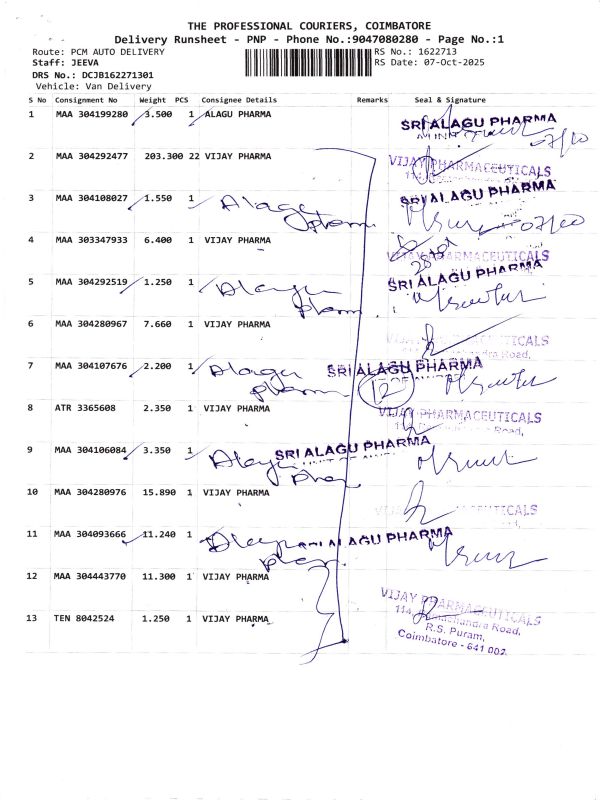 THE PROFESSIONAL COURIERS, COIMBATORE
Delivery Runsheet - PNP - Phone No.:9047080280 - Page No.:1
Route: PCM AUTO DELIVERY RS No.: 1622713
Staff: JEEVA RS Date: 07-Oct-2025
DRS No.: DCJB162271301
Vehicle: Van Delivery
S No Consignment No Weight PCS Consignee Details Remarks Seal & Signature
1 MAA 304199280 3.500 1 ALAGU PHARMA SRI ALAGU PHARMA
07/10
2 MAA 304292477 203.300 22 VIJAY PHARMA VIJAY PHARMACEUTICALS
3 MAA 304108027 1.550 1 Alagu Pharm SRI ALAGU PHARMA
07/10
4 MAA 303347933 6.400 1 VIJAY PHARMA VIJAY PHARMACEUTICALS
5 MAA 304292519 1.250 1 Alagu Pharm SRI ALAGU PHARMA
6 MAA 304280967 7.660 1 VIJAY PHARMA VIJAY PHARMACEUTICALS
Road,
7 MAA 304107676 2.200 1 Alagu Pharm SRI ALAGU PHARMA
12
8 ATR 3365608 2.350 1 VIJAY PHARMA VIJAY PHARMACEUTICALS
Road,
9 MAA 304106084 3.350 1 Alagu SRI ALAGU PHARMA
10 MAA 304280976 15.890 1 VIJAY PHARMA CEUTICALS
11 MAA 304093666 11.240 1 ALAGU PHARMA
12 MAA 304443770 11.300 1 VIJAY PHARMA
13 TEN 8042524 1.250 1 VIJAY PHARMA VIJAY PHARMACEUTICALS
Road,
R.S. Puram,
Coimbatore - 641 002.